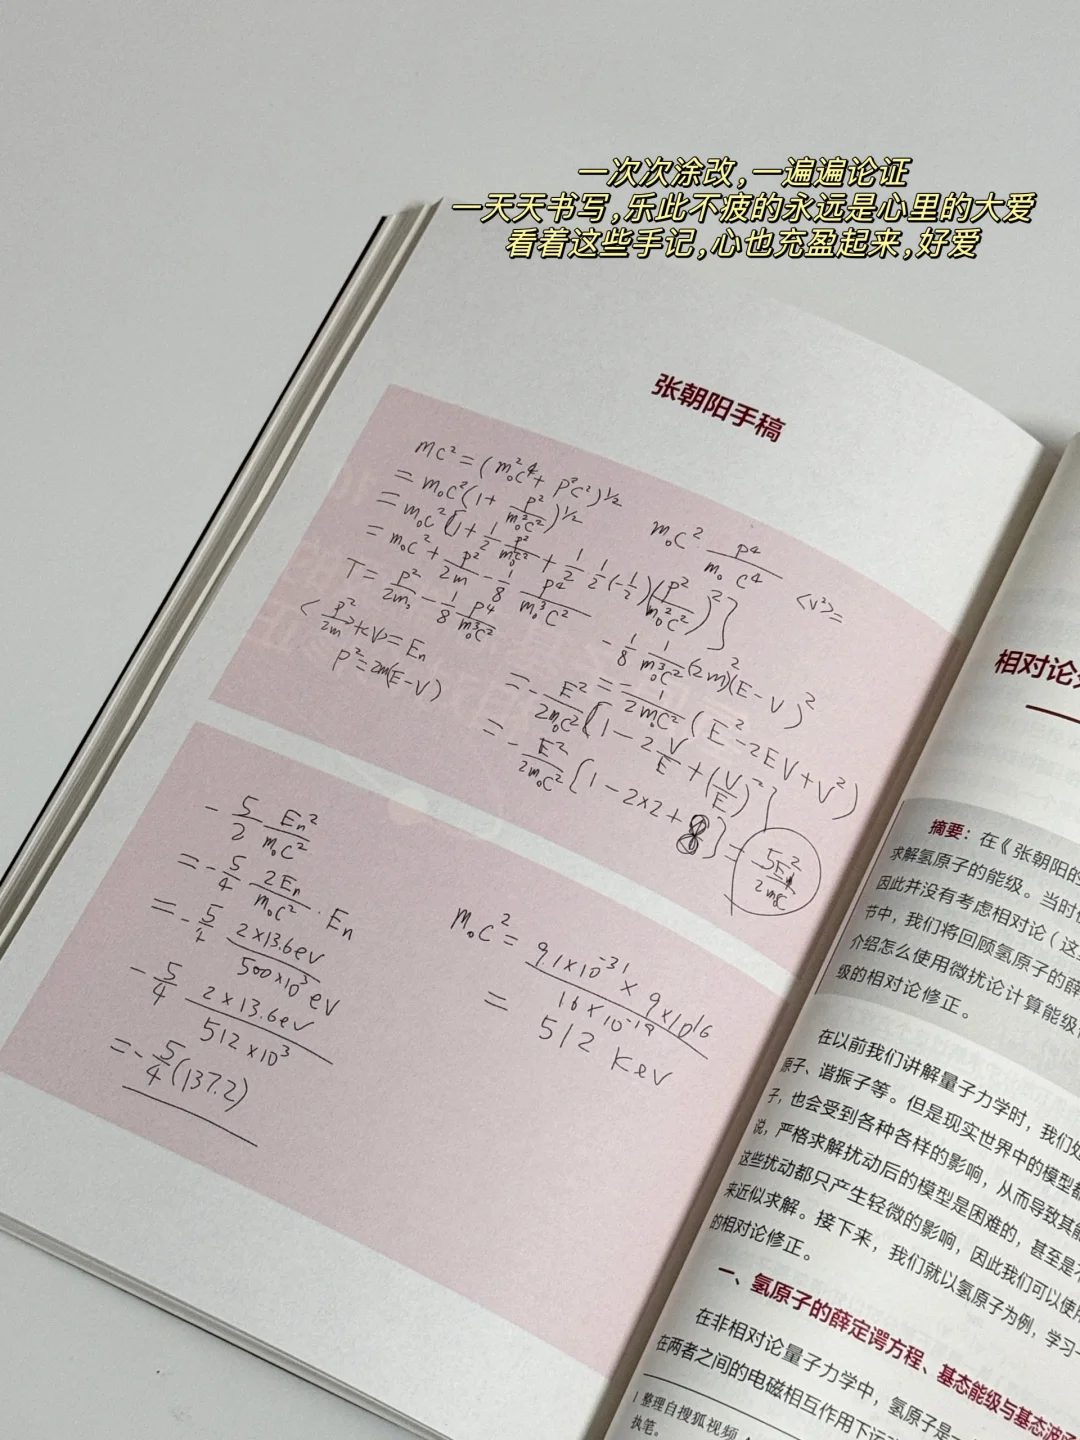 一次次涂改,一遍遍论证
一天天书写,乐此不疲的永远是心里的大爱
看着这些手记,心也充盈起来,好爱
张朝阳手稿
mc² = (m₀²c⁴ + p²c²)^1/2
= m₀c²(1 + p²/m₀²c²)^1/2
= m₀c²[1 + 1/2 p²/m₀²c² + 1/2 1/2 (-1/2)(p²/m₀²c²)²]
= m₀c² + p²/2m - 1/8 p⁴/m₀³c²
T = p²/2m₀ - 1/8 p⁴/m₀³c²
<p²/2m> + <V> = Eₙ
p² = 2m(E-V)
m₀c² p⁴/m₀ c⁴
<V²> =
- 1/8 1/m₀³c² (2m)²(E-V)²
= - 1/2m₀c² (E² - 2EV + V²)
= - E²/2m₀c² [1 - 2 V/E + (V/E)²]
= - E²/2m₀c² [1 - 2×2 + 8] = 5Eₙ²/2m₀c²
- 5/2 Eₙ²/m₀c²
= - 5/4 2Eₙ/m₀c² · Eₙ
= - 5/4 2×13.6eV/500×10³eV
- 5/4 2×13.6eV/512×10³
= - 5/4 (137.2)
m₀c² = 9.1×10⁻³¹ × 9×10¹⁶/16×10⁻¹⁹
= 512 KeV
相对论
摘要：在《张朝阳的
求解氢原子的能级。当时
因此并没有考虑相对论（这
节中，我们将回顾氢原子的薛
介绍怎么使用微扰论计算能级
级的相对论修正。
在以前我们讲解量子力学时，我们处
原子、谐振子等。但是现实世界中的模型都
子，也会受到各种各样的影响，从而导致其能
说，严格求解扰动后的模型是困难的，甚至是不
这些扰动都只产生轻微的影响，因此我们可以使用
来近似求解。接下来，我们就以氢原子为例，学习一
的相对论修正。
一、氢原子的薛定谔方程、基态能级与基态波函
在非相对论量子力学中，氢原子是一
在两者之间的电磁相互作用下运
1 整理自搜狐视频
执笔。